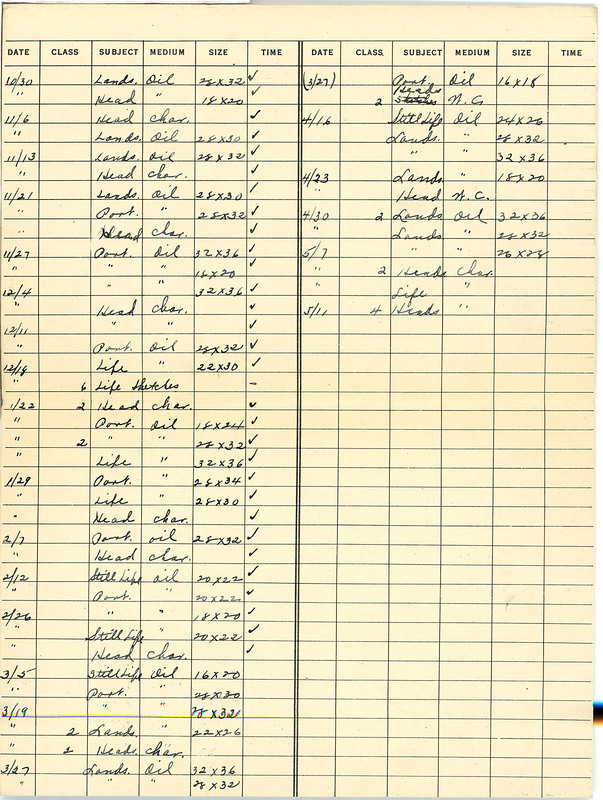 DATE CLASS SUBJECT MEDIUM SIZE TIME
10/30 Lands. Oil 28 x 32 ✓
" Head " 18 x 20 ✓
11/6 Head Char. ✓
" Lands. Oil 28 x 30 ✓
11/13 Lands. Oil 28 x 32 ✓
" Head Char. ✓
11/21 Lands. Oil 28 x 30 ✓
" Port. " 28 x 32 ✓
" Head Char. ✓
11/27 Port. Oil 32 x 36 ✓
" " " 18 x 20 ✓
12/4 " " 32 x 36 ✓
" Head Char. ✓
12/11 " " ✓
" Port. Oil 28 x 32 ✓
12/18 Life " 22 x 30 ✓
" 6 Life Sketches –
1/22 2 Head Char. ✓
" Port. Oil 18 x 24 ✓
" 2 " " 28 x 32 ✓
" Life " 32 x 36 ✓
1/29 Port. " 28 x 34 ✓
" Life " 28 x 30 ✓
" Head Char. ✓
2/7 Port. Oil 28 x 32 ✓
" Head Char. ✓
2/12 Still Life Oil 20 x 22 ✓
" Port. " 20 x 22 ✓
2/26 " " 18 x 20 ✓
" Still Life " 20 x 22 ✓
" Head Char. ✓
3/5 Still Life Oil 16 x 20
" Port. " 28 x 30
3/19 " " 28 x 32
" 2 Lands. " 22 x 26
" 2 Heads Char.
3/27 Lands. Oil 32 x 36
" " 28 x 32
DATE CLASS SUBJECT MEDIUM SIZE TIME
(3/27) Port. Oil 16 x 18
2 Heads Sketches W.C.
4/16 Still Life Oil 24 x 26
Lands. " 28 x 32
" " 32 x 36
4/23 Lands. " 18 x 20
" Head W.C.
4/30 2 Lands Oil 32 x 36
" Lands " 28 x 32
5/7 " " 26 x 28
" 2 Heads Char.
Life "
5/11 4 Heads "